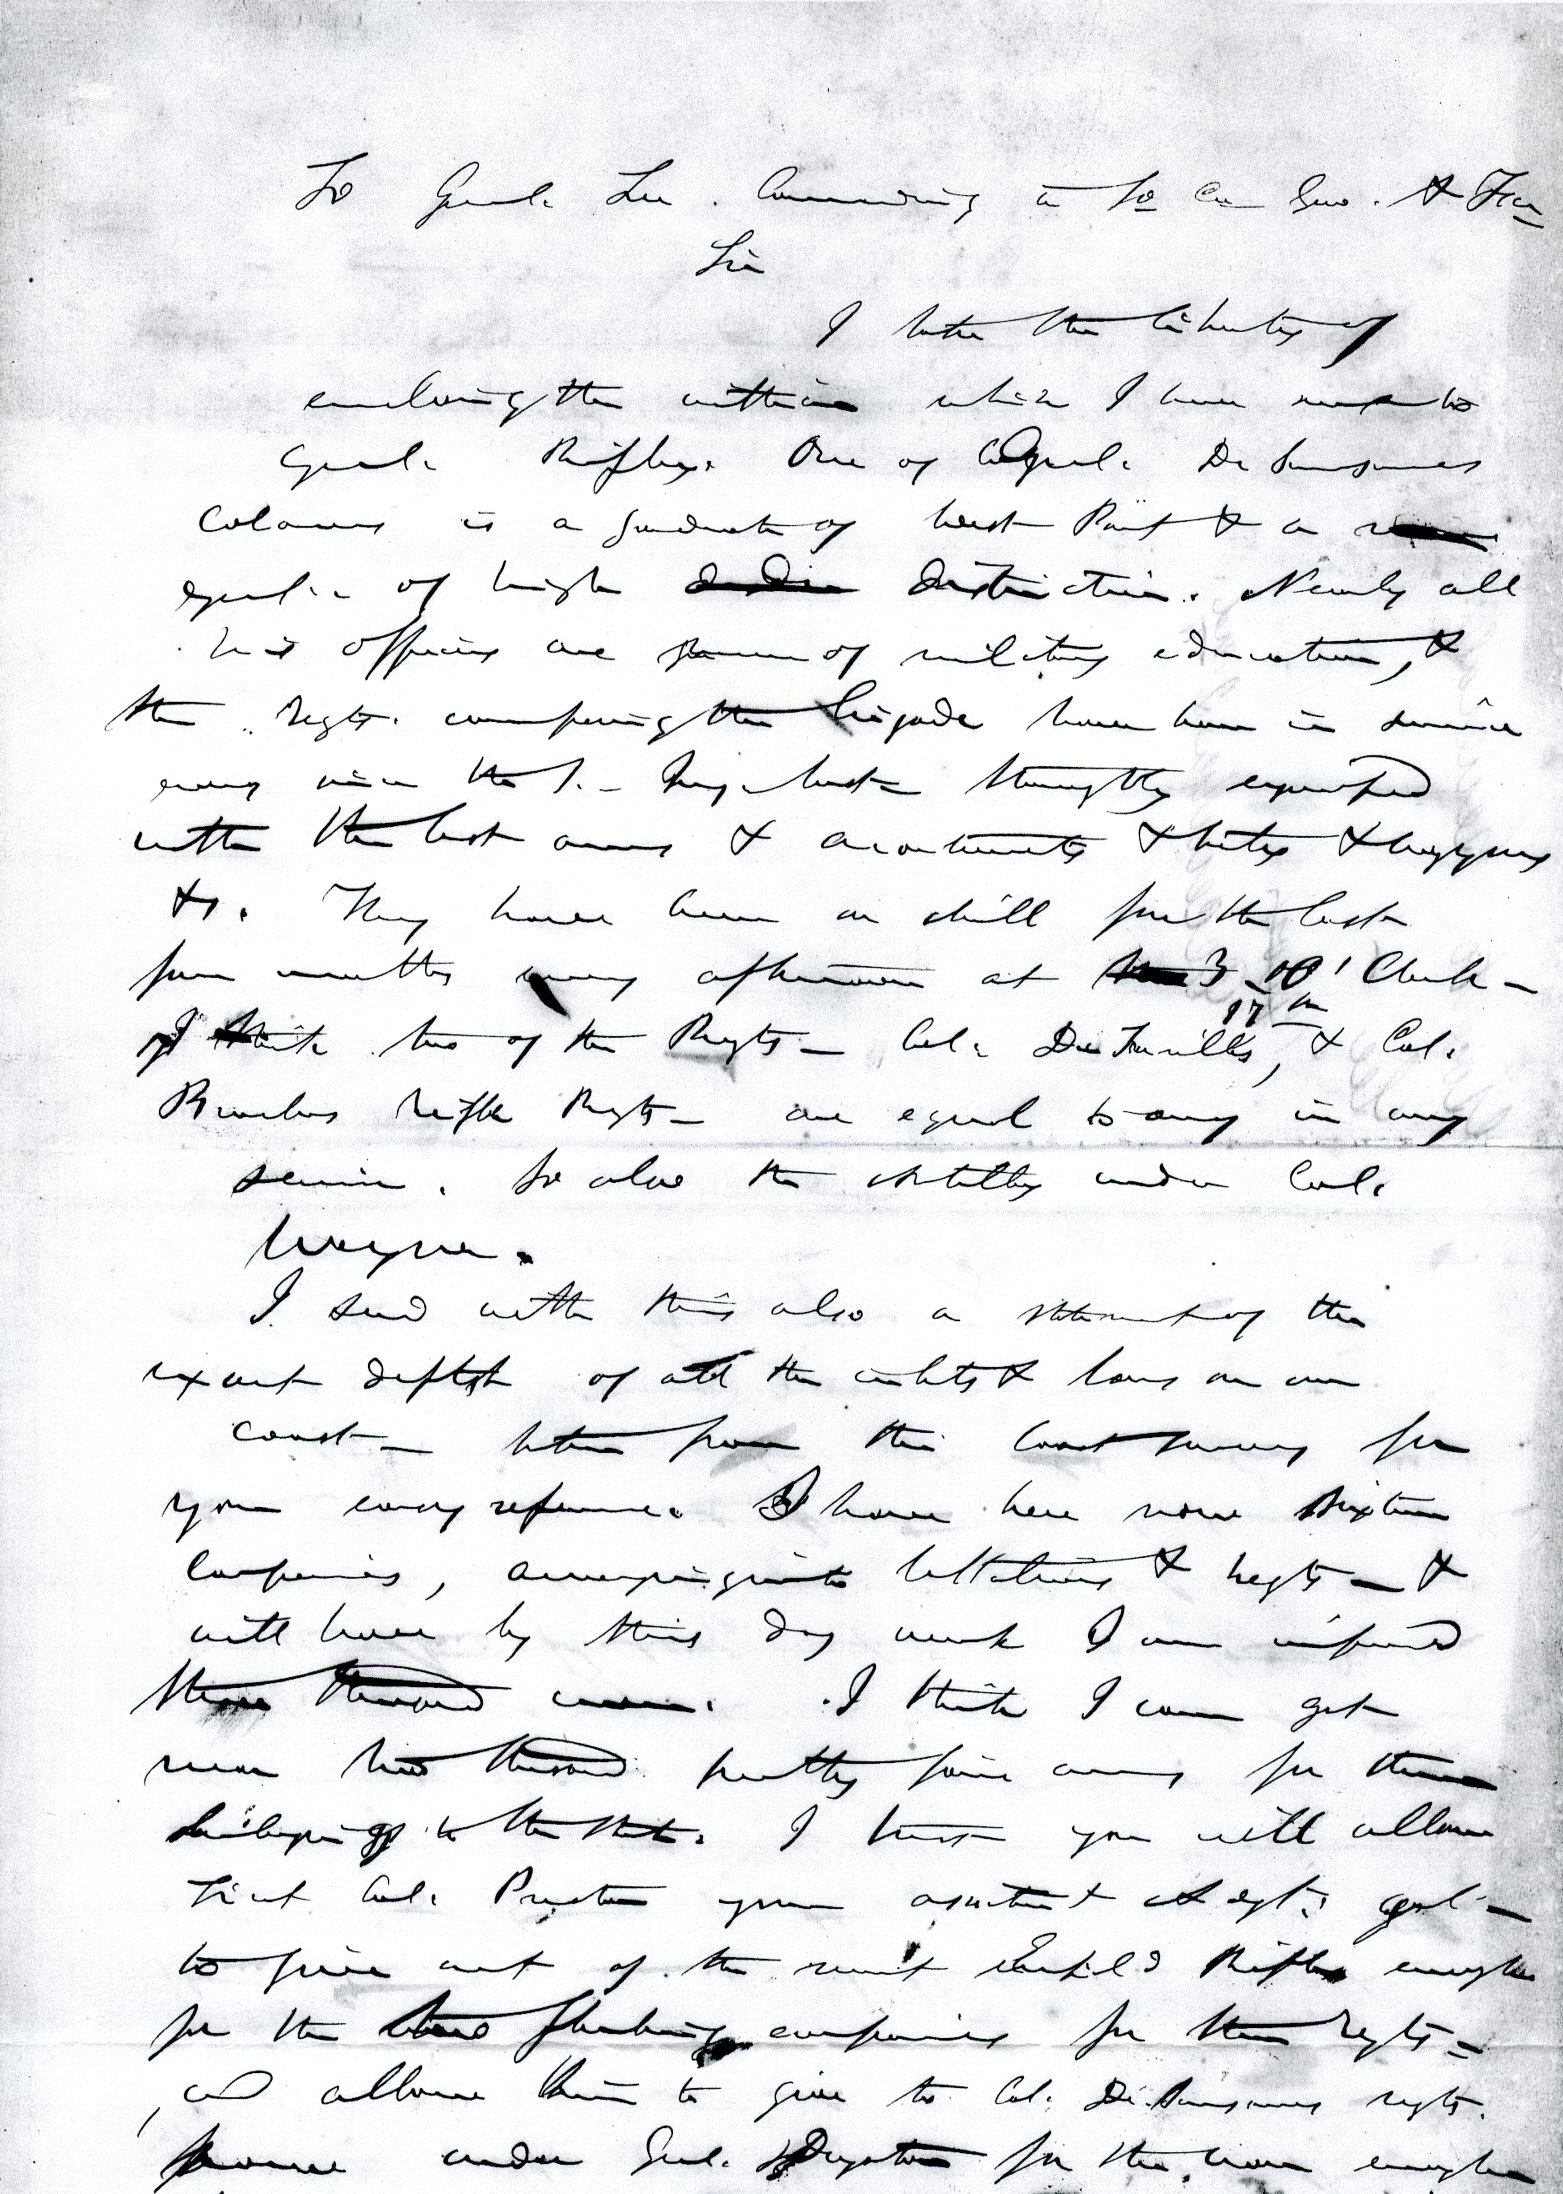 To Genl. Lee. Commanding in So Ca Geo. & Fla
Sir
I take the liberty of
enclosing the within which I have sent to
Genl. Ripley. One of Genl. De Saussures
Colonels is a graduate of West Point & a
of high distinction. Nearly all
his officers are of military education, &
the Regts. composing the brigade have been in service
ever since the 1. They are thoroughly equipped
with the best arms & accoutrements & tents & baggage
&c. They have been on drill for the last
four months every afternoon at 3 O'Clock —
I think two of the Regts — Col. De Trevilles, 17th & Col.
Branchs Rifle Regts — are equal to any in any
service. So also the Artillery under Col.
Wagner.
I send with this also a statement of the
exact depth of all the inlets & bars on our
coast — taken from the Coast survey for
your easy reference. I have here now sixteen
Companies, arranging into battalions & Regts — &
will have by this day week I am informed
three thousand men. I think I can get
near two thousand pretty fair arms for them
belonging to the State. I trust you will allow
Lieut Col. Preston your assistant Adjt. Genl —
to give out of the recent Enfield Rifles enough
for the flanking companies for these Regts —
and allow him to give to Col. De Saussures regts.
now under Genl. Drayton for the war enough